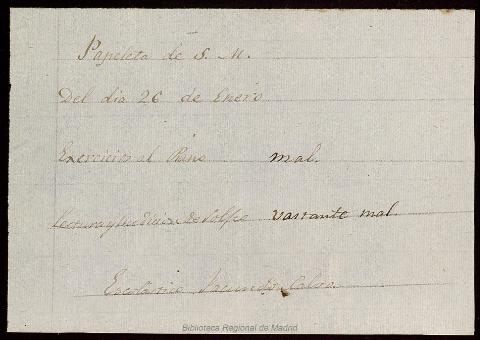 Papeleta de S. M.
Del dia 26 de Enero
Exercicios al Piano mal.
Lectura y medicion de Solfeo vastante mal.
Escolástico Facundo Calvo
Biblioteca Regional de Madrid